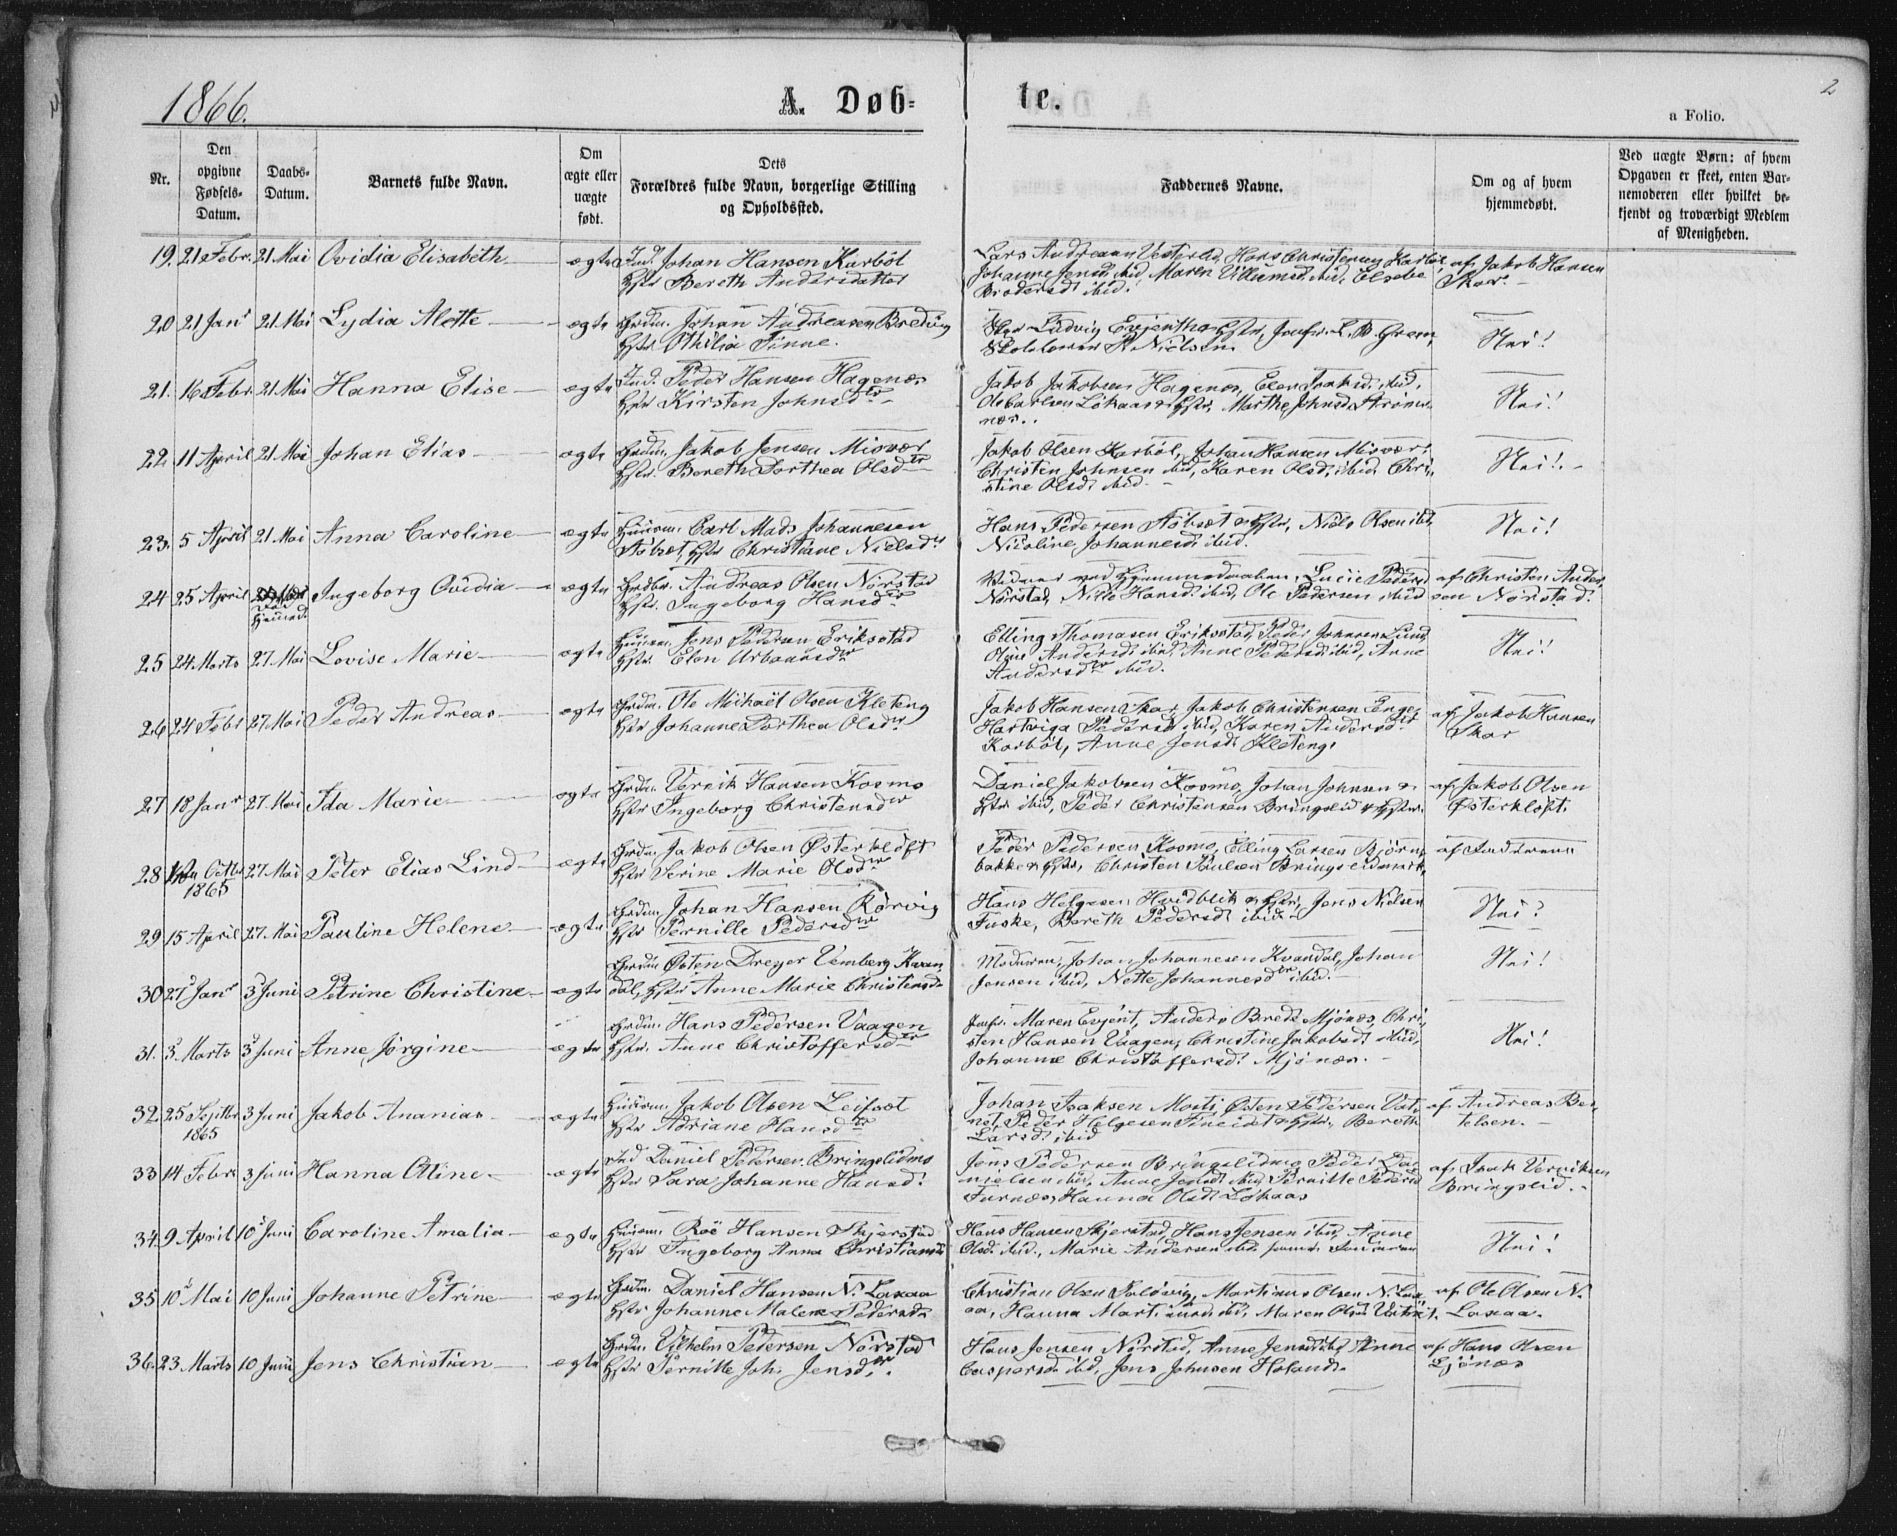 1866.
A. Døb-
te.
2
a Folio.
Nr.
Den opgivne Fødsels-Datum.
Daabs-Datum.
Barnets fulde Navn.
Om ægte eller uægte født.
Dets Forældres fulde Navn, borgerlige Stilling og Opholdssted.
Faddernes Navne.
Om og af hvem hjemmedøbt.
Ved uægte Børn: af hvem Opgaven er skeet, enten Barnemoderen eller hvilket bekjendt og troværdigt Medlem af Menigheden.
19. 21 Febr. 21 Mai Ovidia Elisabeth ægte Ind. Johan Hansen Karbøl
Hstr Bereth Andersdatter
Lars Andreasen Vesterlid, Hans Christensen Karbøl,
Johanne Jensd. ibid, Maren Villumsd. ibid, Elsebe
Brodersd. ibid.
af Jakob Hansen
Skar.
20 21 Janr 21 Mai Lydia Alette ægte Grdm. Johan Andreasen Bredvig
Hstr. Othilia Finne.
Ludvig Evjenth & Hstr, Jomfr. L. B. Green,
Skolelærer Nielsen.
Nei!
21. 16 Febr 21 Mai Hanna Elise ægte Ind. Peder Hansen Hagenæs
Hstr Kirsten Johnsdtr
Jakob Jakobsen Hagenæs, Elen Isaksd. ibid,
Ole Carlsen Løkaas & Hstr, Marthe Johnsd. Strøms-
næs.
Nei!
22. 11 April 21 Mai Johan Elias ægte Grdm. Jakob Jensen Misvær
Hstr. Bereth Dorthea Olsdtr
Jakob Olsen Karbøl, Johan Hansen Misvær,
Christen Johnsen ibid, Karen Olsd. ibid, Chri-
stine Olsd. ibid
Nei!
23. 5 April 21 Mai Anna Caroline ægte Huusm. Carl Mads Johannesen
Hstr Christiane Nielsdtr
Hans Pedersen & Hstr, Niels Olsen ibd,
Nicoline Johannesd. ibid.
Nei!
24 25 April Ingeborg Ovidia ægte Grdbr. Andreas Olsen Nørstad
Hstr. Ingeborg Hansdtr
Vidner ved Hjemmedaaben, Lucie Pedersd
Nørstad, Nille Hansd. ibid, Ole Pedersen ibid
af Christen Ander-
sen Nørstad.
25 24 Marts 27 Mai Lovise Marie ægte Huusm. Jens Pedersen Eriksstad
Hstr. Elen Urbansdtr
Elling Thomasen Eriksstad, Peder Johnsen Lund,
Oline Andersd. ibid, Anne Pedersd. ibid, Anne
Andersdtr ibid.
Nei!
26 24 Febr 27 Mai Peder Andreas ægte Grdm. Ole Mikael Olsen Kleteng
Hstr Johanne Dorthea Olsdr
Jakob Hansen Skar, Jakob Christensen Enge,
Hartviga Pedersd. ibid, Karen Andersdtr
Karbøl, Anne Jensd. Kleteng.
af Jakob Hansen
Skar
27 18 Janr 27 Mai Ida Marie ægte Grdm. Vernik Hansen Kosmo
Hstr Ingeborg Christensdtr
Daniel Jakobsen Kosmo, Johan Johnsen &
Hstr ibid, Peder Christensen Bringslid & Hstru.
af Jakob Olsen
Østerkløft.
28 Octbr 27 Mai Peter Elias Lind ægte Grdm. Jakob Olsen Østerkløft
1865
Hstr Serine Marie Olsdtr
Peder Pedersen Kosmo, Elling Larsen Bjørn-
bakke & Hstr, Christen Paulsen Bringslidmark,
af Faderen
29 15 April 27 Mai Pauline Helene ægte Grdm. Johan Hansen Rørvig
Hstr Pernille Pedersdtr
Hans Helgesen Hvidblik & Hstr, Jens Nielsen
Fuske, Bereth Pedersd. ibid.
Nei?
30 27 Janr 3 Juni Petrine Christine ægte Grdm Østen Dreyer Vemberg Kvan-
dal, Hstr Anne Marie Christensd
Moderen, Johan Johannesen Kvandal, Johan
Jensen ibid, Nette Johannesdtr ibid.
Nei!
31. 3 Marts 3 Juni Anne Jørgine ægte Grdm. Hans Pedersen Vaagen
Hstr. Anne Christoffersdtr
Jomfr. Maren Evjent, Anders Brede Mjønes, Chri-
sten Hansen Vaagen, Christine Jakobsd. ibid,
Johanne Christoffersd. Mjønæs.
Nei!
32. 25 Septbr 3 Juni Jakob Ananias ægte Huusm. Jakob Olsen Leifset
1865
Hstr Adriane Hansdtr
Johan Isaksen Østen Pedersen Vat-
ne, Peder Helgesen Fineidet & Hstr, Bereth
Larsd. ibid
af Andreas Ber-
telsen.
33 14 Febr 3 Juni Hanna Oline ægte Ind Daniel Pedersen Bringslidmo
Hstr Sara Johanne Hansd.
Jens Pedersen Bringslidmo, Peder Da-
nielsen ibid, Anne Jensd. ibid, Pernille Pedersd
Furnes, Hanna Olsd. Løkaas
af Isak Verniksen
Bringslid.
34. 9 April 10 Juni Caroline Amalia ægte Huusm. Roe Hansen Skjerstad
Hstr Ingeborg Anna Christiansd
Hans Hansen Skjerstad, Hans Jensen ibid, Anne
Olsd. ibid., Marie Andersen ibid
Nei!
35 10 Mai 10 Juni Johanne Petrine ægte Grdm. Daniel Hansen N. Laxaa
Hstr Johanne Malene Pedersd.
Christian Olsen Soløvig, Martinus Olsen N. Lax-
aa, Hanna Martinusd. ibid, Maren Olsd.
af Ole Olsen N.
Laxaa.
36. 23 Marts 10 Juni Jens Christian ægte Grdm. Vilhelm Petersen Nørstad
Hstr Pernille Joh. Jensdtr.
Hans Jensen Nørstad, Anne Jensd. ibid, Anne
Caspersd. ibid, Jens Johnsen Holand.
af Hans Olsen
Ljønæs